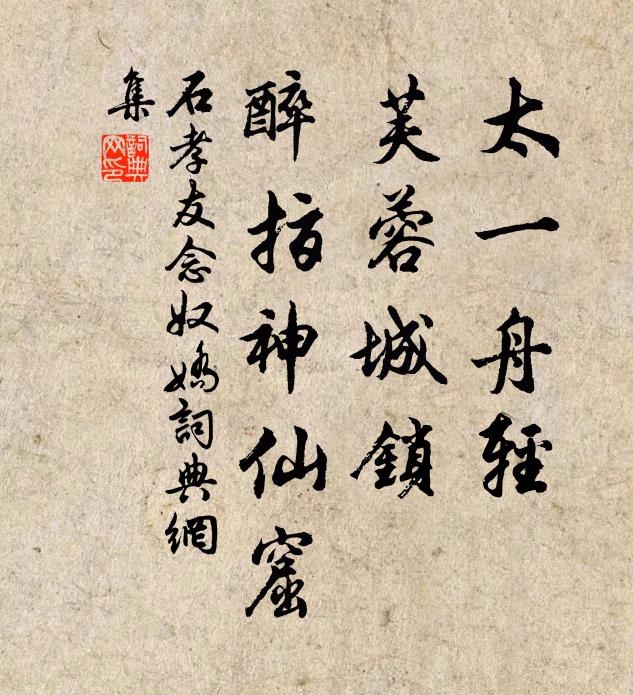 太一舟輕
芙蓉城鎖
醉指神仙窟
石孝友念奴嬌詞典網
集
詞典網印